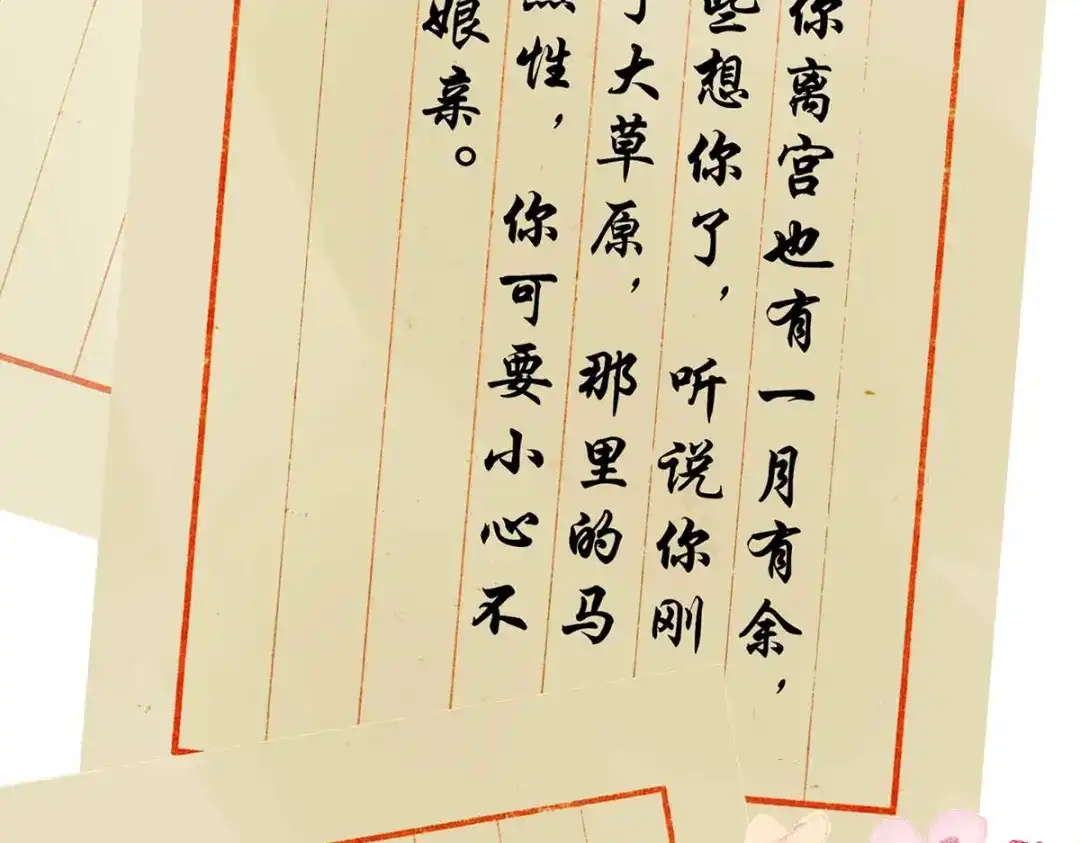 你离宫也有一月有余，
些想你了，听说你刚
了大草原，那里的马
性，你可要小心不
娘亲。